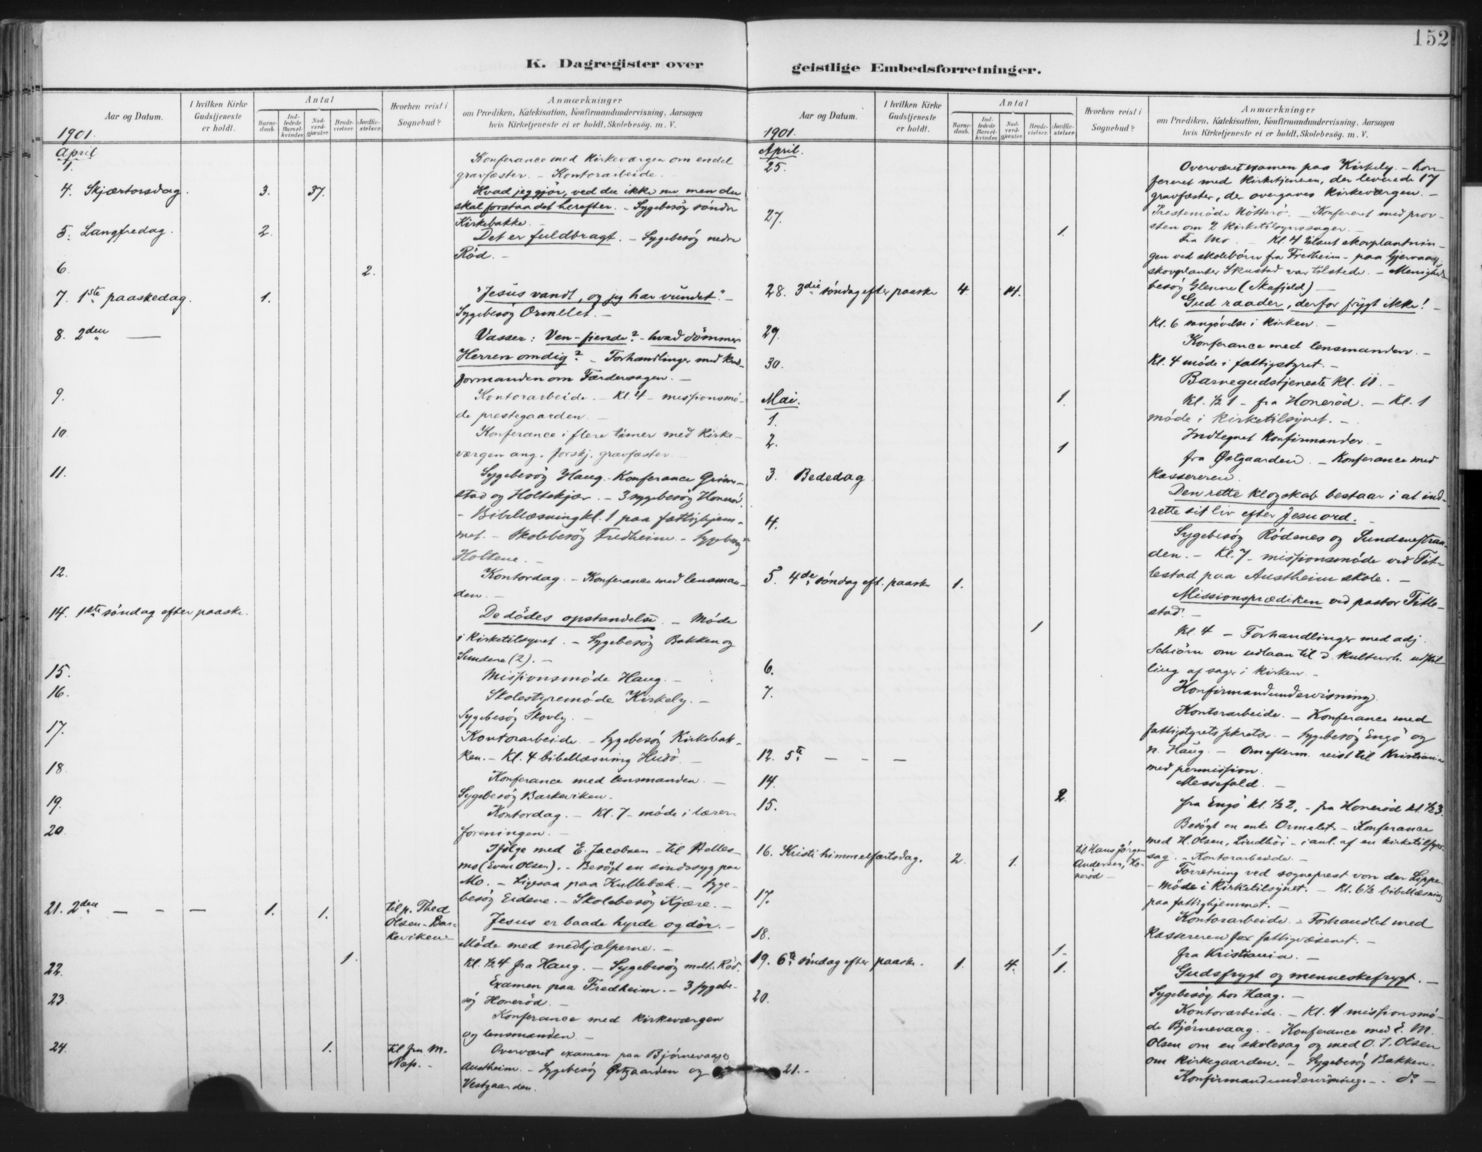 152
K. Dagregister over
Aar og Datum.
I hvilken Kirke Gudstjeneste er holdt.
Antal
Barne-daab.
Ind-ledede Barsel-kvinder.
Nad-verd-gjester.
Brude-vielser.
Jordfæ-stelser.
Hvorhen reist i Sognebud?
Anmærkninger
om Prædiken, Katekisation, Konfirmandundervisning, Aarsagen
hvis Kirketjeneste ei er holdt, Skolebesøg, m. V.
1901.
April
Konferance med kirkeværgen om endel
gravfæster. – Kontorarbeide.
4. Skjærtorsdag. 3. 37. Hvad jeg gjør, ved du ikke nu men du
skal forstaa det herefter. – Sygebesøg søndre
Kirkebakke.
5. Langfredag. 2. Det er fuldbragt. – Sygebesøg nedre
Rød. –
6. 2.
7. 1ste paaskedag. 1. "Jesus vandt, og jeg har vundet". –
Sygebesøg Ormelet. –
8. 2den — Vasser: Ven – fiende? – hvad dømmer
Herren om dig? – Forhandlinger med
formanden om Færdersagen. –
9. Kontorarbeide. – Kl. 4 – missionsmø-
de prestegaarden. –
10 Konferance i flere timer med kirke-
værgen ang. forskj. gravfæster. –
11. Sygebesøg Haug. – Konferance Grim-
stad og Holtekjær. – 3 sygebesøg Honerød.
– Bibellæsning kl. 1 paa fattighjem-
met. – Skolebesøg Fredheim. – Sygebesøg
Holtene. –
12. Kontordag. – Konferance med lensman-
den. –
14. 1ste søndag efter paaske. De dødes opstandelse. – Møde
i kirketilsynet. – Sygebesøg Bakken og
Sundene (2). –
15. Missionsmøde Haug. –
16. Skolestyremøde Kirkely. –
Sygebesøg Skovly. –
17. Kontorarbeide – Sygebesøg Kirkebak-
ken. – Kl. 4 bibellæsning Hvasser. –
18. Konferance med lensmanden. –
Sygebesøg Barkeviken. –
19. Kontordag. – Kl. 7 – møde i lærer-
foreningen. –
20. Ifølge med E. Jacobsen – til Holles-
mo (Even Olsen). – Besøgt en sindssyg paa
Mo. – Ligesaa paa Kullebæk. – Syge-
besøg Eidene. – Skolebesøg Kjære. –
21. 2den — — — 1. 1. til p. Thod Jesus er baade hyrde og dør. –
Olsen – Bar-
keviken – Møde med medhjælperne. –
22. 1. Kl. ½4 fra Haug. – Sygebesøg melt. Rød.
Examen paa Fredheim. – 3 sygebe-
23. søg Honerød. –
Konferance med kirkeværgen
og lensmanden. –
24. 1. til fru M. Overværet examen paa Bjørnevaag
Næss. – Austheim. – Sygebesøg Østgaarden og
Vestgaarden.
geistlige Embedsforretninger.
Aar og Datum.
I hvilken Kirke Gudstjeneste er holdt.
Antal
Barne-daab.
Ind-ledede Barsel-kvinder.
Nad-verd-gjester.
Brude-vielser.
Jordfæ-stelser.
Hvorhen reist i Sognebud?
Anmærkninger
om Prædiken, Katekisation, Konfirmandundervisning, Aarsagen
hvis Kirketjeneste ei er holdt, Skolebesøg, m. V.
1901.
April.
25. Overværet examen paa Kirkely. – Kon-
fereret med kirketjeneren, der leverede 17
gravfæster, der overgaves kirkeværgen. –
27. Prestemøde Nøtterø. – Konferert med prov-
sten om 2 kirketilsynssager. –
1. fra Mo. – Kl. 4 tilsaut skovplantnin-
gen ved skolebørn fra Fredheim – paa Gjervaag,
skovplanter Skustad var tilstede. – Menigheds-
besøg Glenne (Skafjeld) –
28. 3die søndag efter paaske 4 14. Gud raader, derfor frygt ikke! –
Kl. 6 sangøvelse i kirken. –
29. Konferance med lensmanden. –
30. Kl. 4 møde i fattigstyret. –
Barnegudstjeneste kl. 11. –
Mai. 1. Kl. ½ 1 – fra Honerød. – Kl. 1
1. møde i kirketilsynet. –
2. Indtegnet konfirmander. –
1 fra Østgaarden. – Konferance med
3. Bededag kassereren. –
Den rette klogskab bestaar i at ind-
rette sit liv efter Jesu ord. –
4. Sygebesøg Rødenes og Sundenestran-
den. – Kl. 7 – missionsmøde ved Tit-
lestad paa Austheim skole. –
5. 4de søndag eft. paaske 1. Missionsprædiken ved pastor Title-
stad.
1 Kl. 4 – Forhandlinger med adj.
Schiørn om udlaan til d. kulturh. udstil-
ling af sager i kirken. –
6. Konfirmandundervisning
7. Kontorarbeide. – Konferance med
fattigstyrets sekretær. – Sygebesøg Engø og
n. Haug. – Om efterm. reist til Kristiania
12. 5te — — — med permission.
14. Messefald. –
15. 2 fra Engø kl. ½ 2, – fra Honerød kl. ½ 3.
Besøgt en enke Ormelet. – Konferance
16. Kristi himmelfartsdag. 2. 1. til Hans Jørgen med H. Olsen, Lindhøi – i anl. af en kirketilsyns-
Andersen, Ho- sag. – Kontorarbeide. –
nerød – Forretning ved sogneprest von der Lippe –
17. – møde i kirketilsynet. – Kl. 6½ bibellæsning
paa fattighjemmet. –
18. Kontorarbeide. – Forhandlet med
kassereren for fattigvæsenet. –
1. fra Kristiania –
19. 6te søndag efter paaske. 1. 4. 1. Gudsfrygt og menneskefrygt. –
Sygebesøg hos Haag. –
20. Kontorarbeide. – Kl. 4 missionsmø-
de Bjørnevaag. – Konferance med E. M.
Olsen om en skolesag og med O. J. Olsen
om kirkegaarden. – Sygebesøg Bakken.
21. – Konfirmandundervisning. – do –